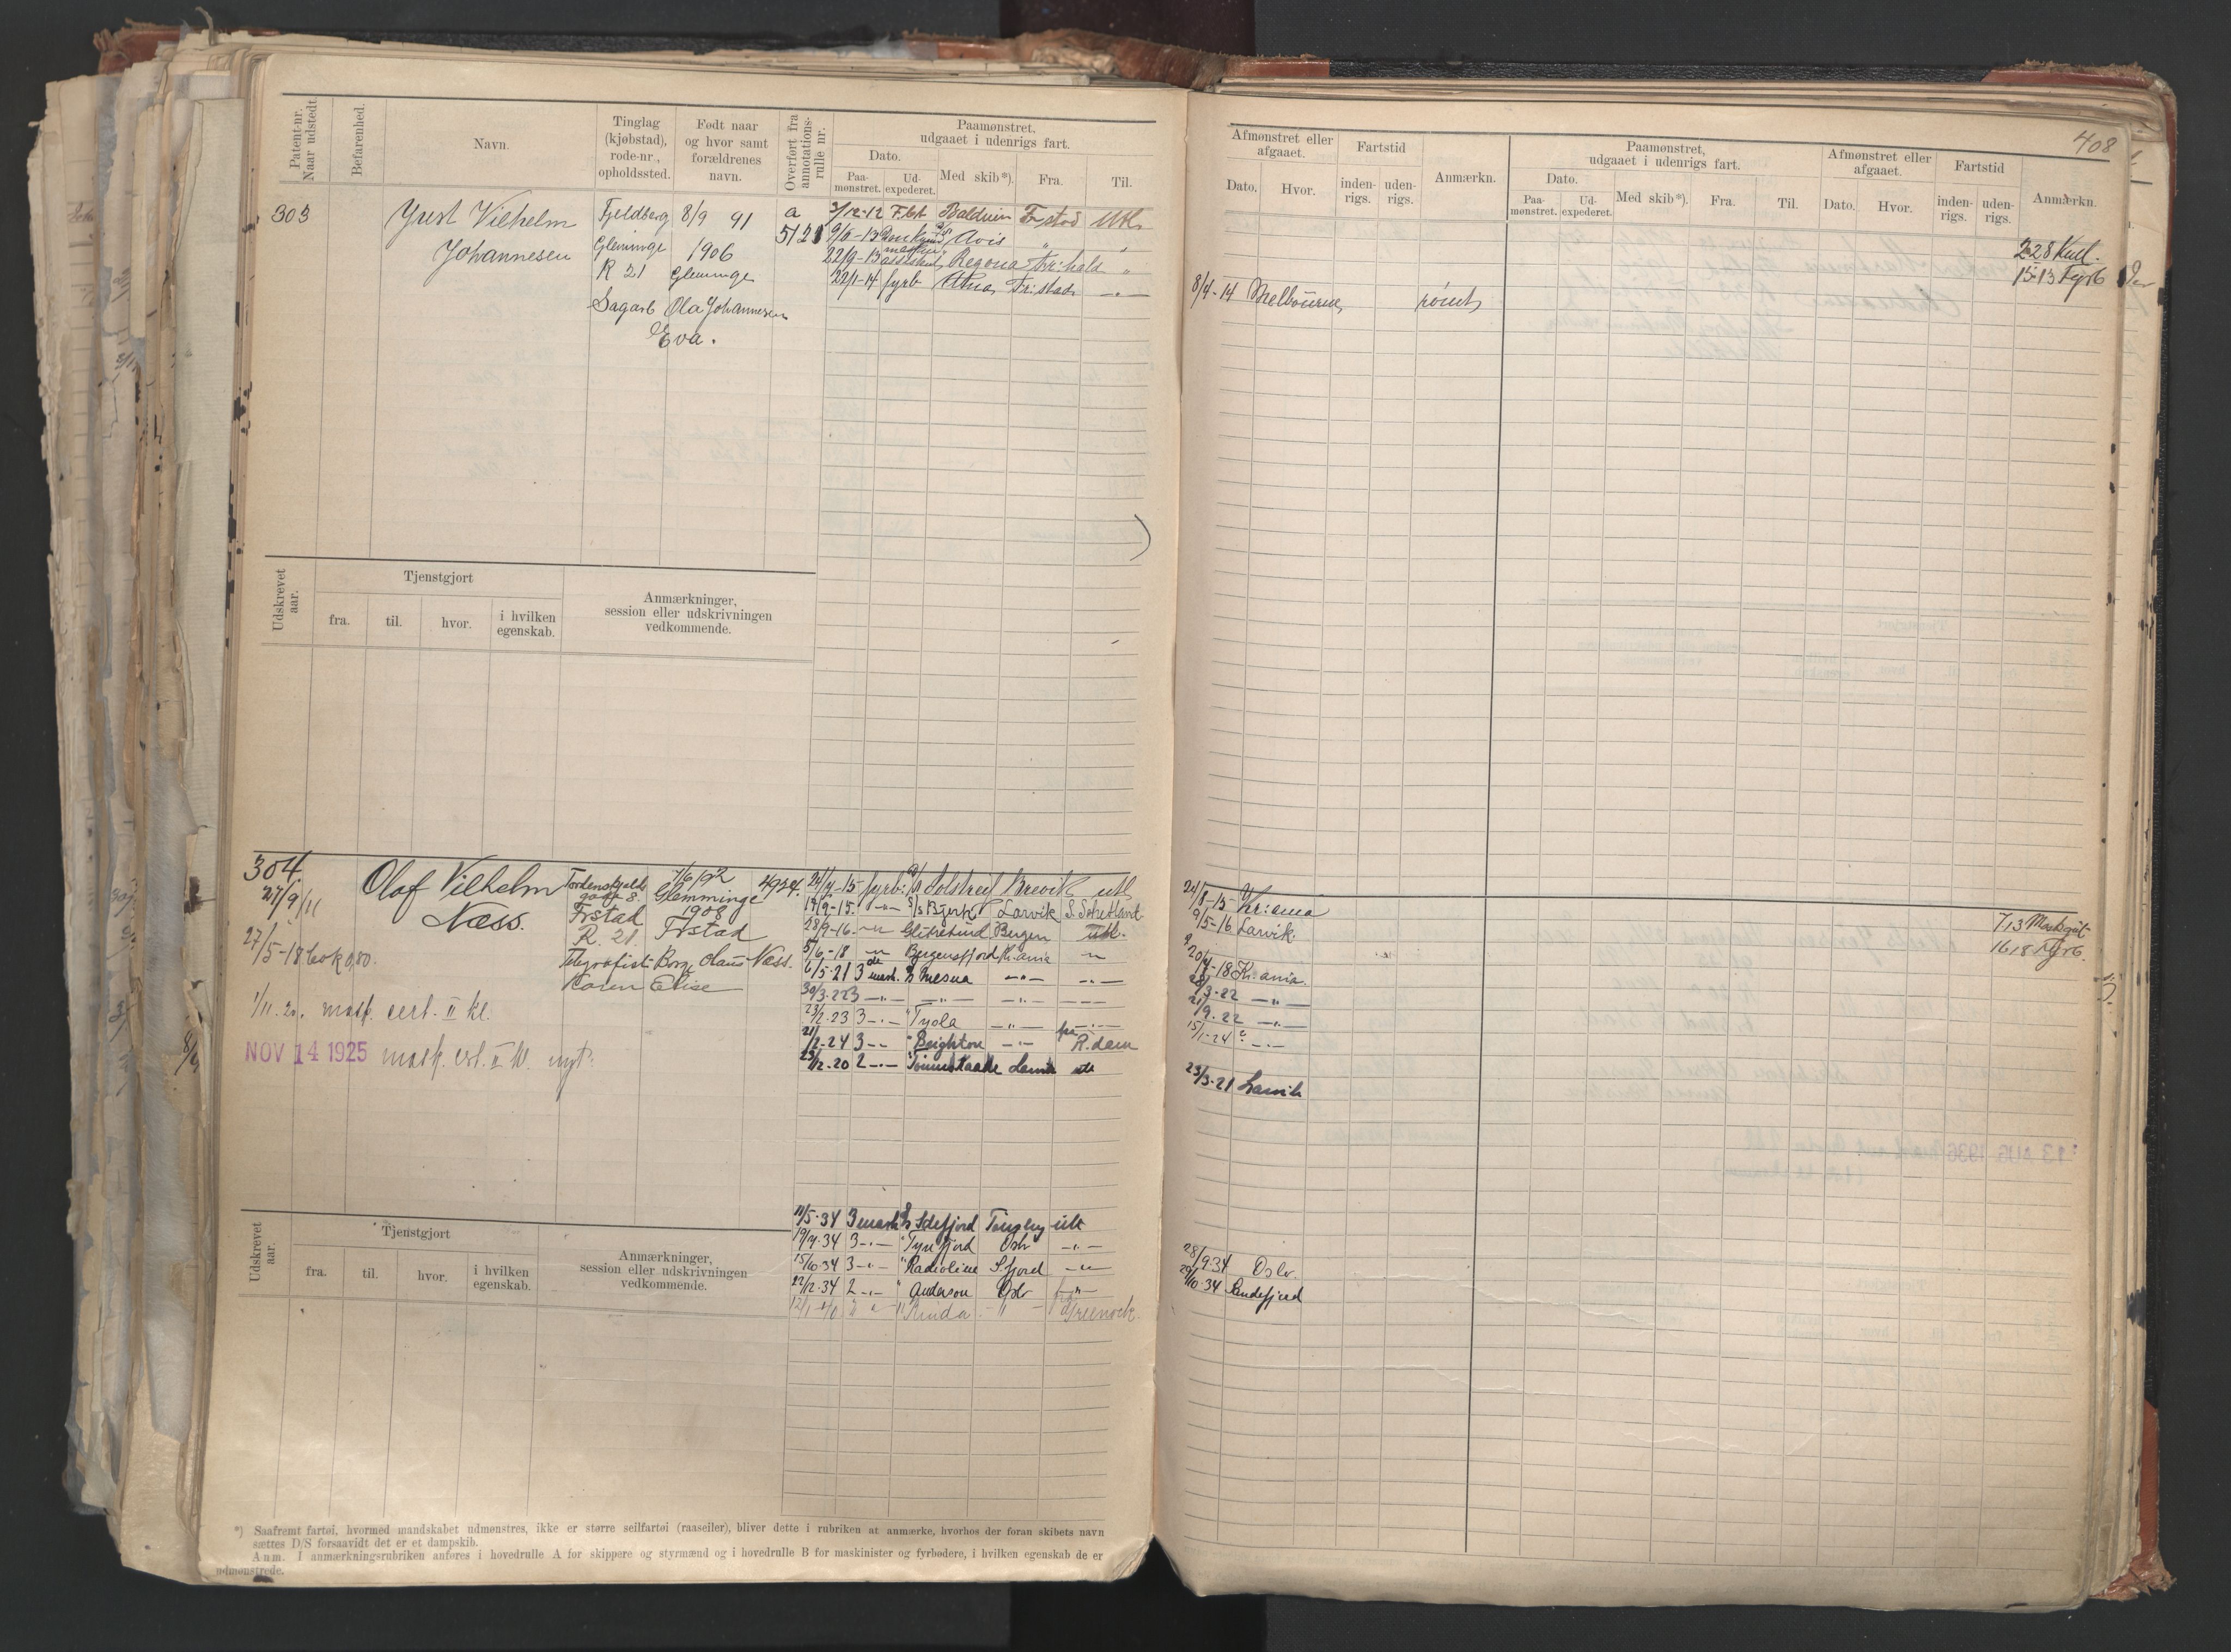 408
Patent-nr. Naar udstedt.
Befarenhed.
Navn.
Tinglag (kjøbstad), rode-nr., opholdssted.
Født naar og hvor samt forældrenes navn.
Overført fra annotationsrulle nr.
Paamønstret, udgaaet i udenrigs fart.
Dato.
Paamønstret.
Udexpederet.
Med skib*).
Fra.
Til.
Afmønstret eller afgaaet.
Dato.
Hvor.
Fartstid
indenrigs.
udenrigs.
Anmærkn.
Paamønstret, udgaaet i udenrigs fart.
Dato.
Paamønstret.
Udexpederet.
Med skib*).
Fra.
Til.
Afmønstret eller afgaaet.
Dato.
Hvor.
Fartstid
indenrigs.
udenrigs.
Anmærkn.
303
Just Vilhelm
Johannesen
Fjeldberg
Glemminge
R 21
Sagarb
8/9 91
1906
Glemminge
Ola Johannesen
Eva.
a
5121
3/12-12 F.bt Balduin Frstad Utl.
9/6-13 Avis " "
22/9-13 assistent Regona Fr:hald "
22/1-14 fyrb Fr:stad —"—
8/4-14 Melbourne rømt
228 Kul.
15-13 Fyrb
Udskrevet aar.
Tjenstgjort
fra.
til.
hvor.
i hvilken egenskab.
Anmærkninger, session eller udskrivningen vedkommende.
304
27/9 11
Olaf Vilhelm
Næss.
Tordenskjolds
gate 8.
Frstad
R. 21.
Telegrafist
7/6 92
Glemminge
1908
Frstad
Borge Claus Næss.
Karen Elise
4924.
27/5-18 bok 0,80.
1/11. 20. mask. cert. II kl.
NOV 14 1925 mask. crt. II kl. nyt.
24/4-15 fyrb: S/S Solstreif Brevik utl
17/9-15. —"— S/S Bjerk Larvik S. Schetland
28/9-16. —"— Glitrefind Bergen utl.
5/6-18 —"— Bergensfjord Kr.ania —"—
6/5-21 3de mask. S/S Mesna —"— —"—
30/3-22 3 —"— —"— —"— —"—
23/2-23 3 —"— " Tyola —"— —"—
21/2-24 3 —"— " Brighton —"— fra R.dam
23/12-20 2 —"— " Larvik utl
24/8-15 Kr:ania
9/5-16 Larvik.
20/4-18 Kr.ania.
28/3-22 —"—
21/9. 22 —"—
15/1-24 —"—
23/3-21 Larvik
713 Maskgut
1618 Fyrb.
11/5-34 3 mask S/S Idefjord Tønsberg utl
19/7-34 3 —"— " Tyrifjord Oslo —"—
15/10-34 3 —"— " Radioline S.fjord —"—
22/12-34 2 —"— " Anderson Oslo —"—
12/1-40 " —"— " Rinda —"— Greenock.
28/9 34 Oslo.
29/10-34 Sandefjord
Udskrevet aar.
Tjenstgjort
fra.
til.
hvor.
i hvilken egenskab.
Anmærkninger, session eller udskrivningen vedkommende.
*) Saafremt fartøi, hvormed mandskabet udmønstres, ikke er større seilfartøi (raaseiler), bliver dette i rubriken at anmærke, hvorhos der foran skibets navn
sættes D/S forsaavidt det er et dampskib.
Anm. I anmærkningsrubriken anføres i hovedrulle A for skippere og styrmænd og i hovedrulle B for maskinister og fyrbødere, i hvilken egenskab de er
udmønstrede.